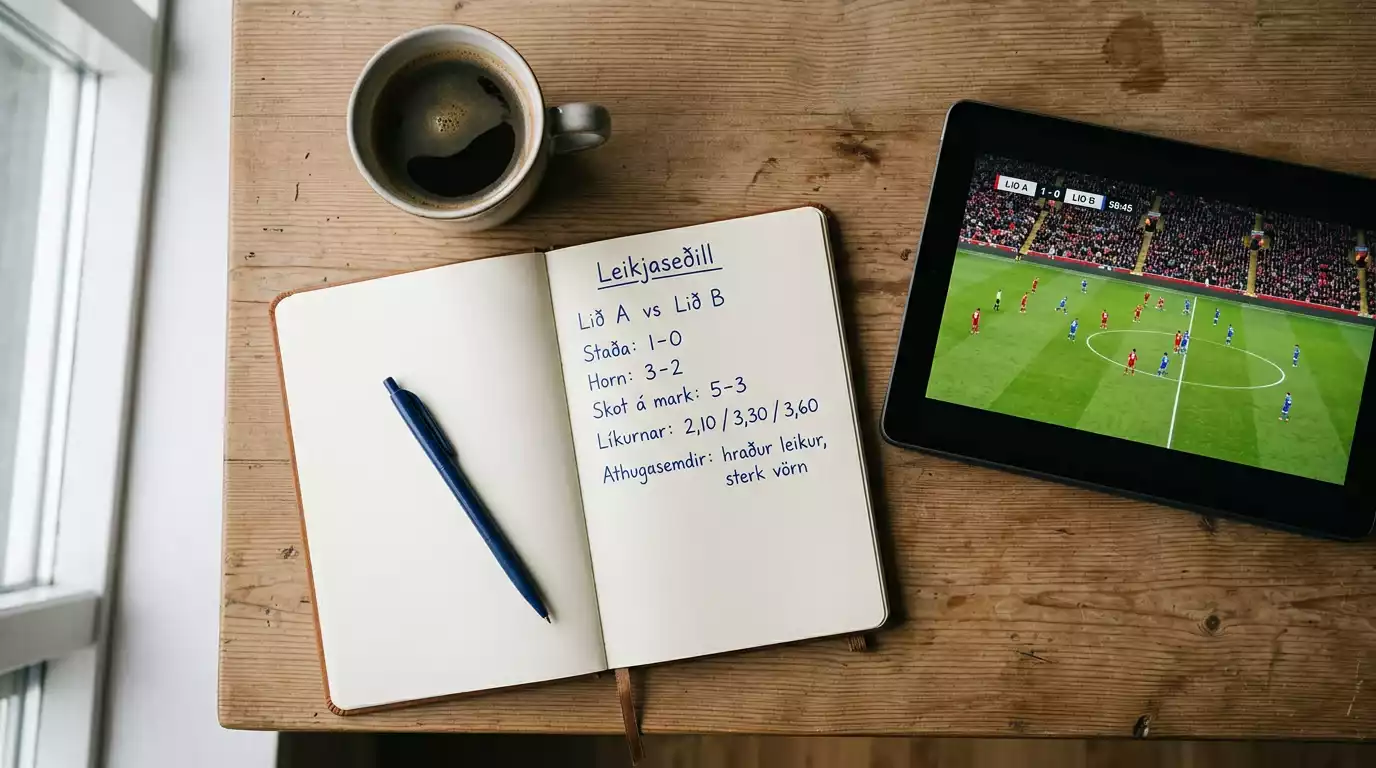 Leikjaseðill
Lið A vs Lið B
Staða: 1-0
Horn: 3-2
Skot á mark: 5-3
Líkurnar: 2,10 / 3,30 / 3,60
Athugasemdir: hraður leikur,
sterk vörn
LIO A 1-0 LIO B 58:45